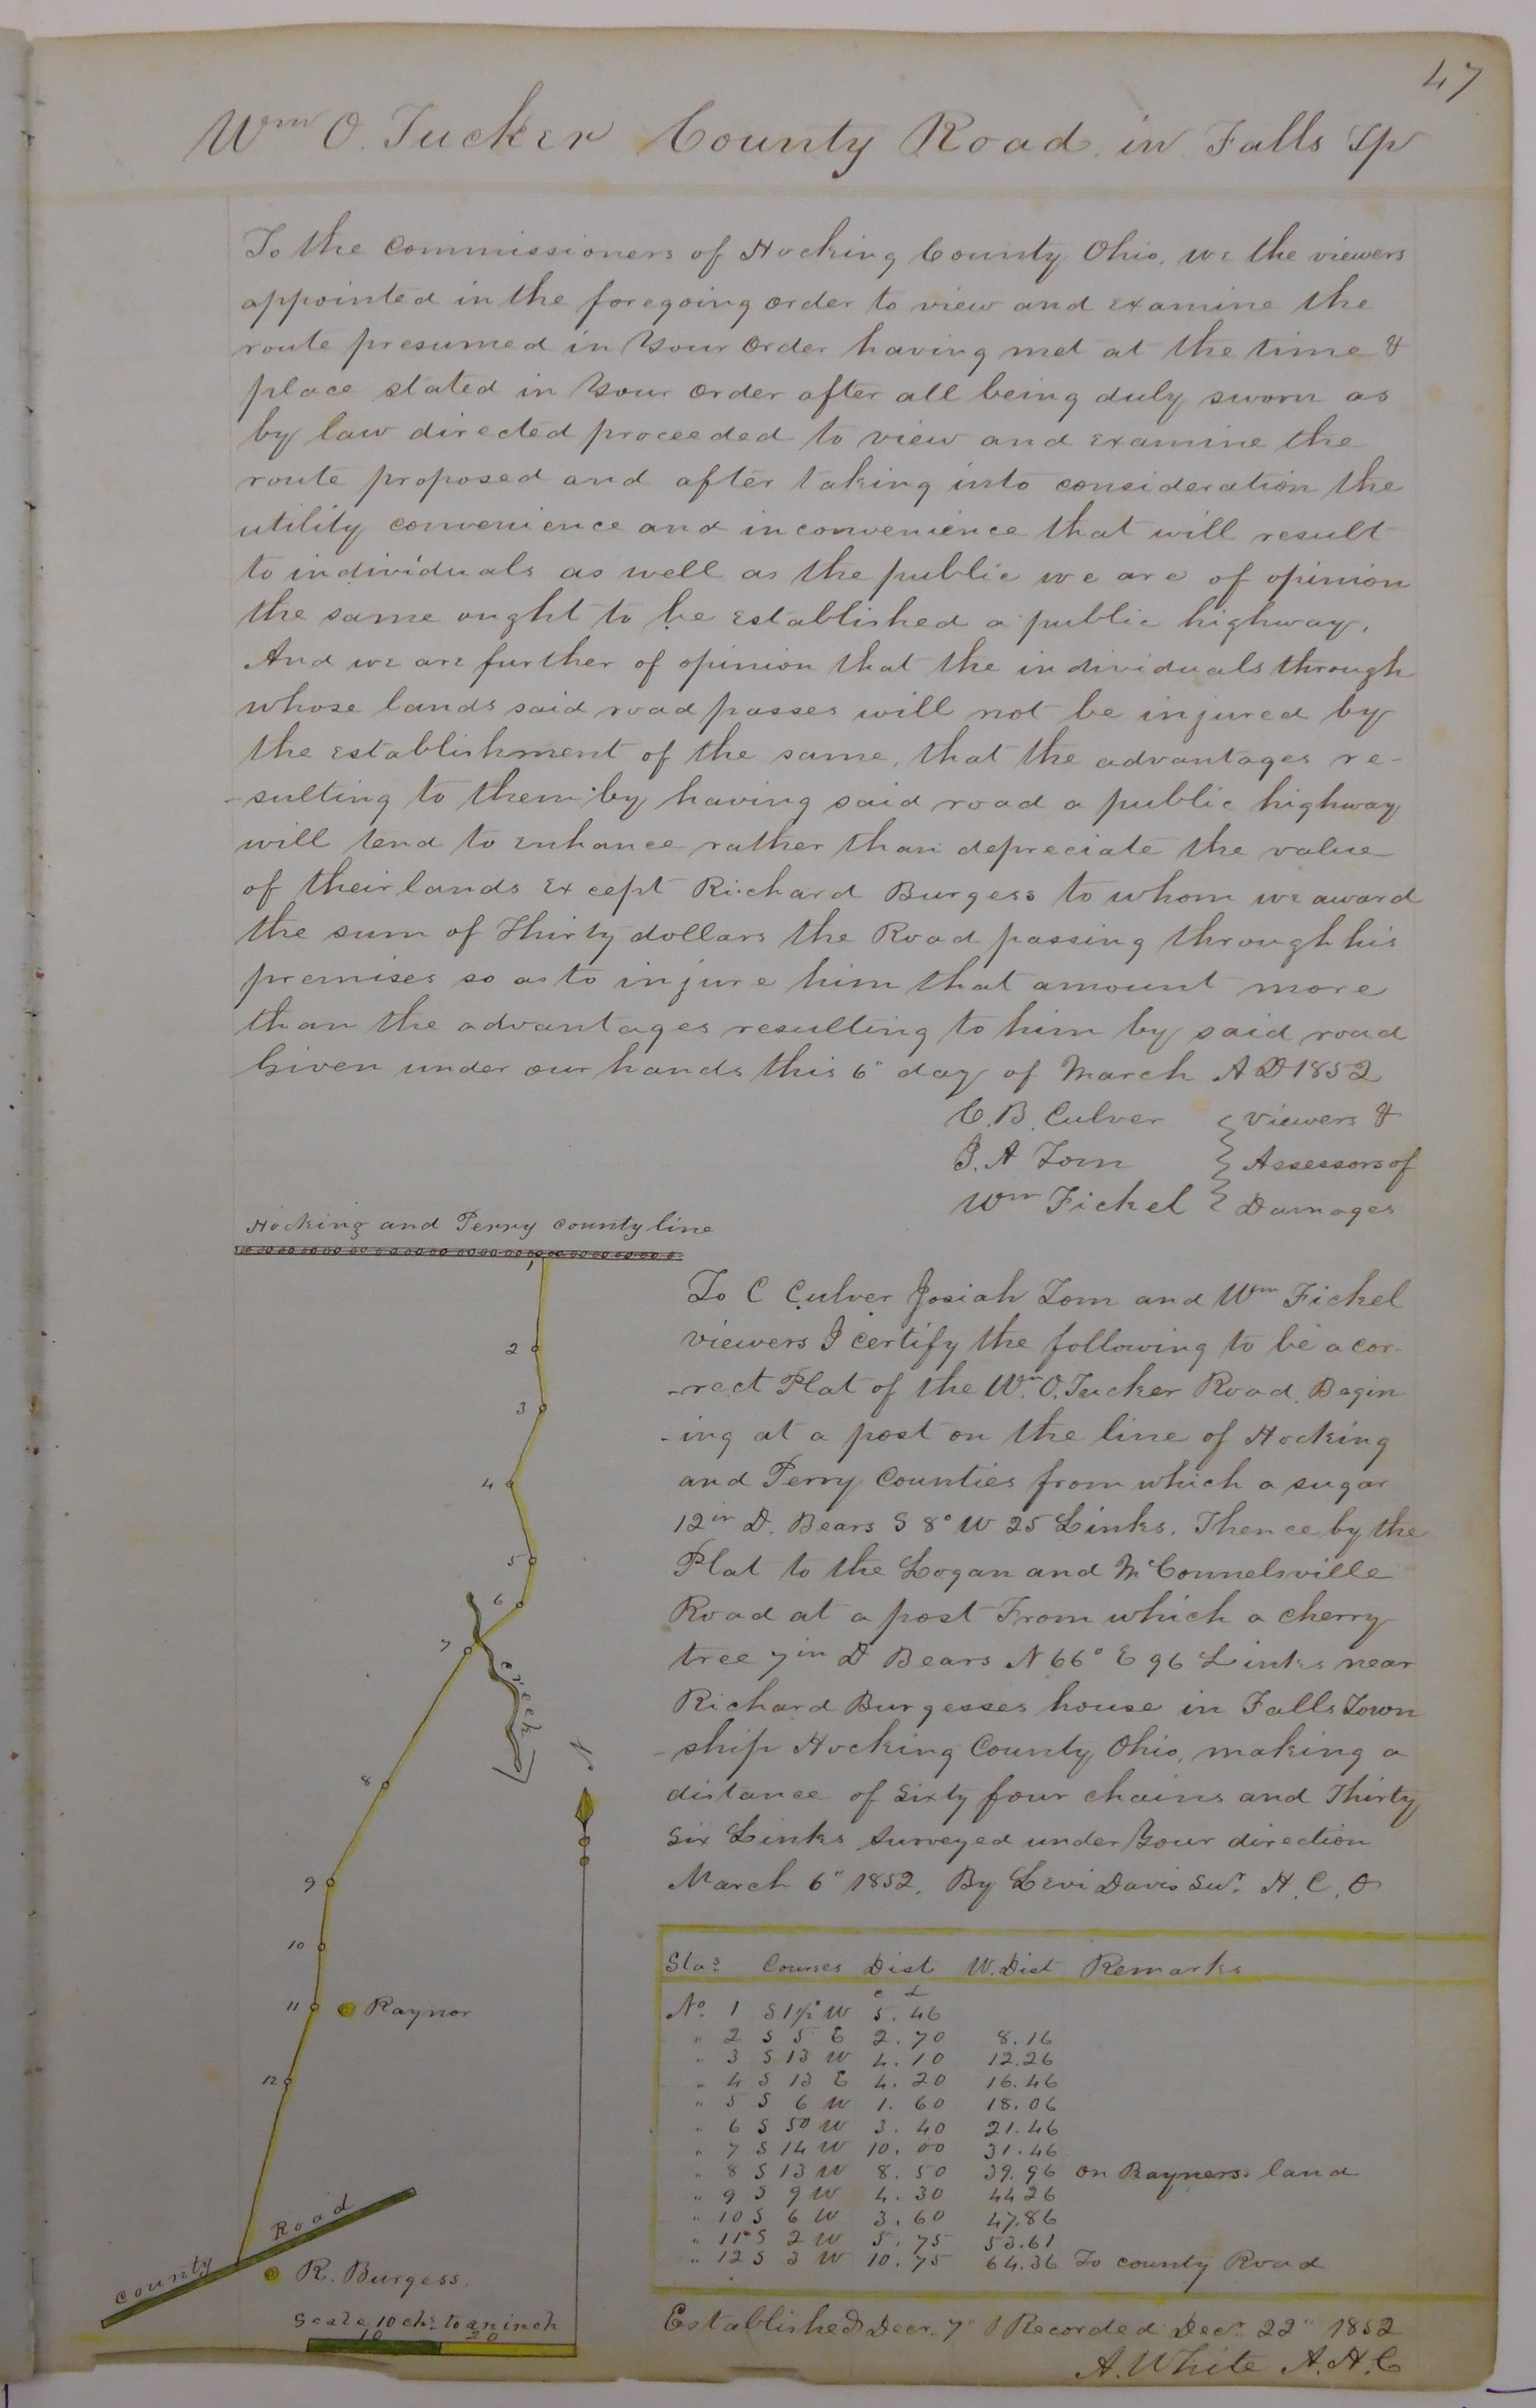 47
Wm O. Tucker County Road in Falls Tp
To the Commissioners of Hocking County Ohio. We the viewers
appointed in the foregoing order to view and examine the
route presumed in Your Order having met at the time &
place stated in Your Order after all being duly sworn as
by law directed proceeded to view and examine the
route proposed and after taking into consideration the
utility convenience and inconvenience that will result
to individuals as well as the public we are of opinion
the same ought to be established a public highway.
And we are further of opinion that the individuals through
whose lands said road passes will not be injured by
the establishment of the same, that the advantages re-
-sulting to them by having said road a public highway
will tend to enhance rather than depreciate the value
of their lands except Richard Burgess to whom we award
the sum of Thirty dollars the Road passing through his
premises so as to injure him that amount more
than the advantages resulting to him by said road
Given under our hands this 6" day of March A D 1852
C. B. Culver } viewers &
J. A Tom } Assessors of
Wm Fickel } Damages
Hocking and Perry County line
1
2
3
4
5
6
7
creek
8
N
9
10
11 Raynor
12
County Road
R. Burgess.
Scale 10 chs. to an inch
10 20
To C Culver Josiah Tom and Wm Fickel
viewers I certify the following to be a cor-
-rect Plat of the Wm. O. Tucker Road. Begin
-ing at a post on the line of Hocking
and Perry Counties from which a sugar
12 in D. Bears S 8° W 25 Links. Thence by the
Plat to the Logan and McConnelsville
Road at a post From which a cherry
tree 7 in D Bears N 66° E 96 Links near
Richard Burgesses house in Falls Town
-ship Hocking County Ohio, making a
distance of Sixty four chains and Thirty
Six Links Surveyed under Your direction
March 6" 1852. By Levi Davis Sur. H. C. O
Stas. Courses Dist W. Dist Remarks
C L
No. 1 S 1½° W 5.46
" 2 S 5 E 2.70 8.16
" 3 S 13 W 4.10 12.26
" 4 S 13 E 4.20 16.46
" 5 S 6 W 1.60 18.06
" 6 S 50 W 3.40 21.46
" 7 S 14 W 10.00 31.46
" 8 S 13 W 8.50 39.96 on Rayners land
" 9 S 9 W 4.30 44 26
" 10 S 6 W 3.60 47.86
" 11 S 2 W 5.75 53.61
" 12 S 3 W 10.75 64.36 To county Road
Established Decr. 7" Recorded Decr. 22" 1852
A. White A. H. C